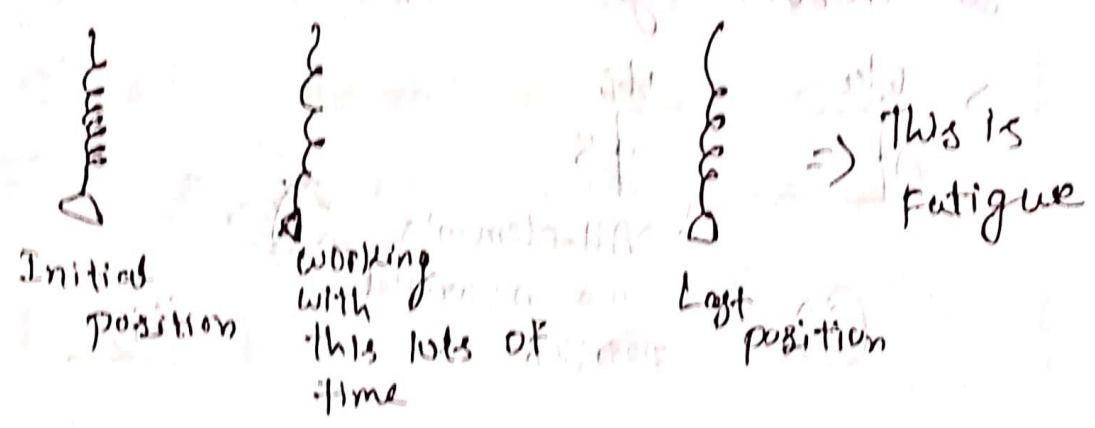 Initial
position
working
with
this lots of
time
Last
position
=> This is
Fatigue